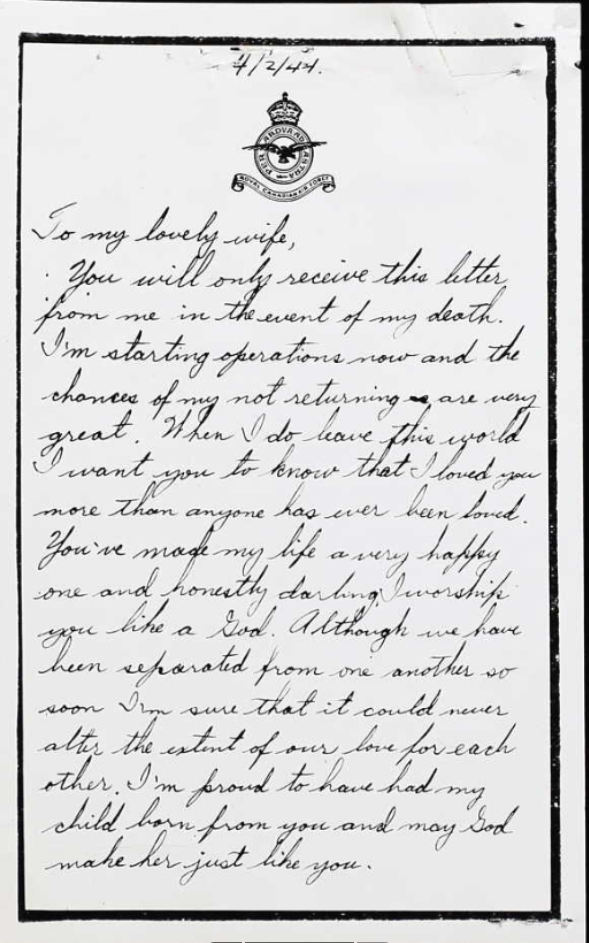 4/2/44.
PER ARDVA AD ASTRA
ROYAL CANADIAN AIR FORCE
To my lovely wife,
You will only receive this letter
from me in the event of my death.
I'm starting operations now and the
chances of my not returning are very
great. When I do leave this world
I want you to know that I loved you
more than anyone has ever been loved.
You've made my life a very happy
one and honestly darling, I worship
you like a God. Although we have
been separated from one another so
soon I'm sure that it could never
alter the extent of our love for each
other. I'm proud to have had my
child born from you and may God
make her just like you.